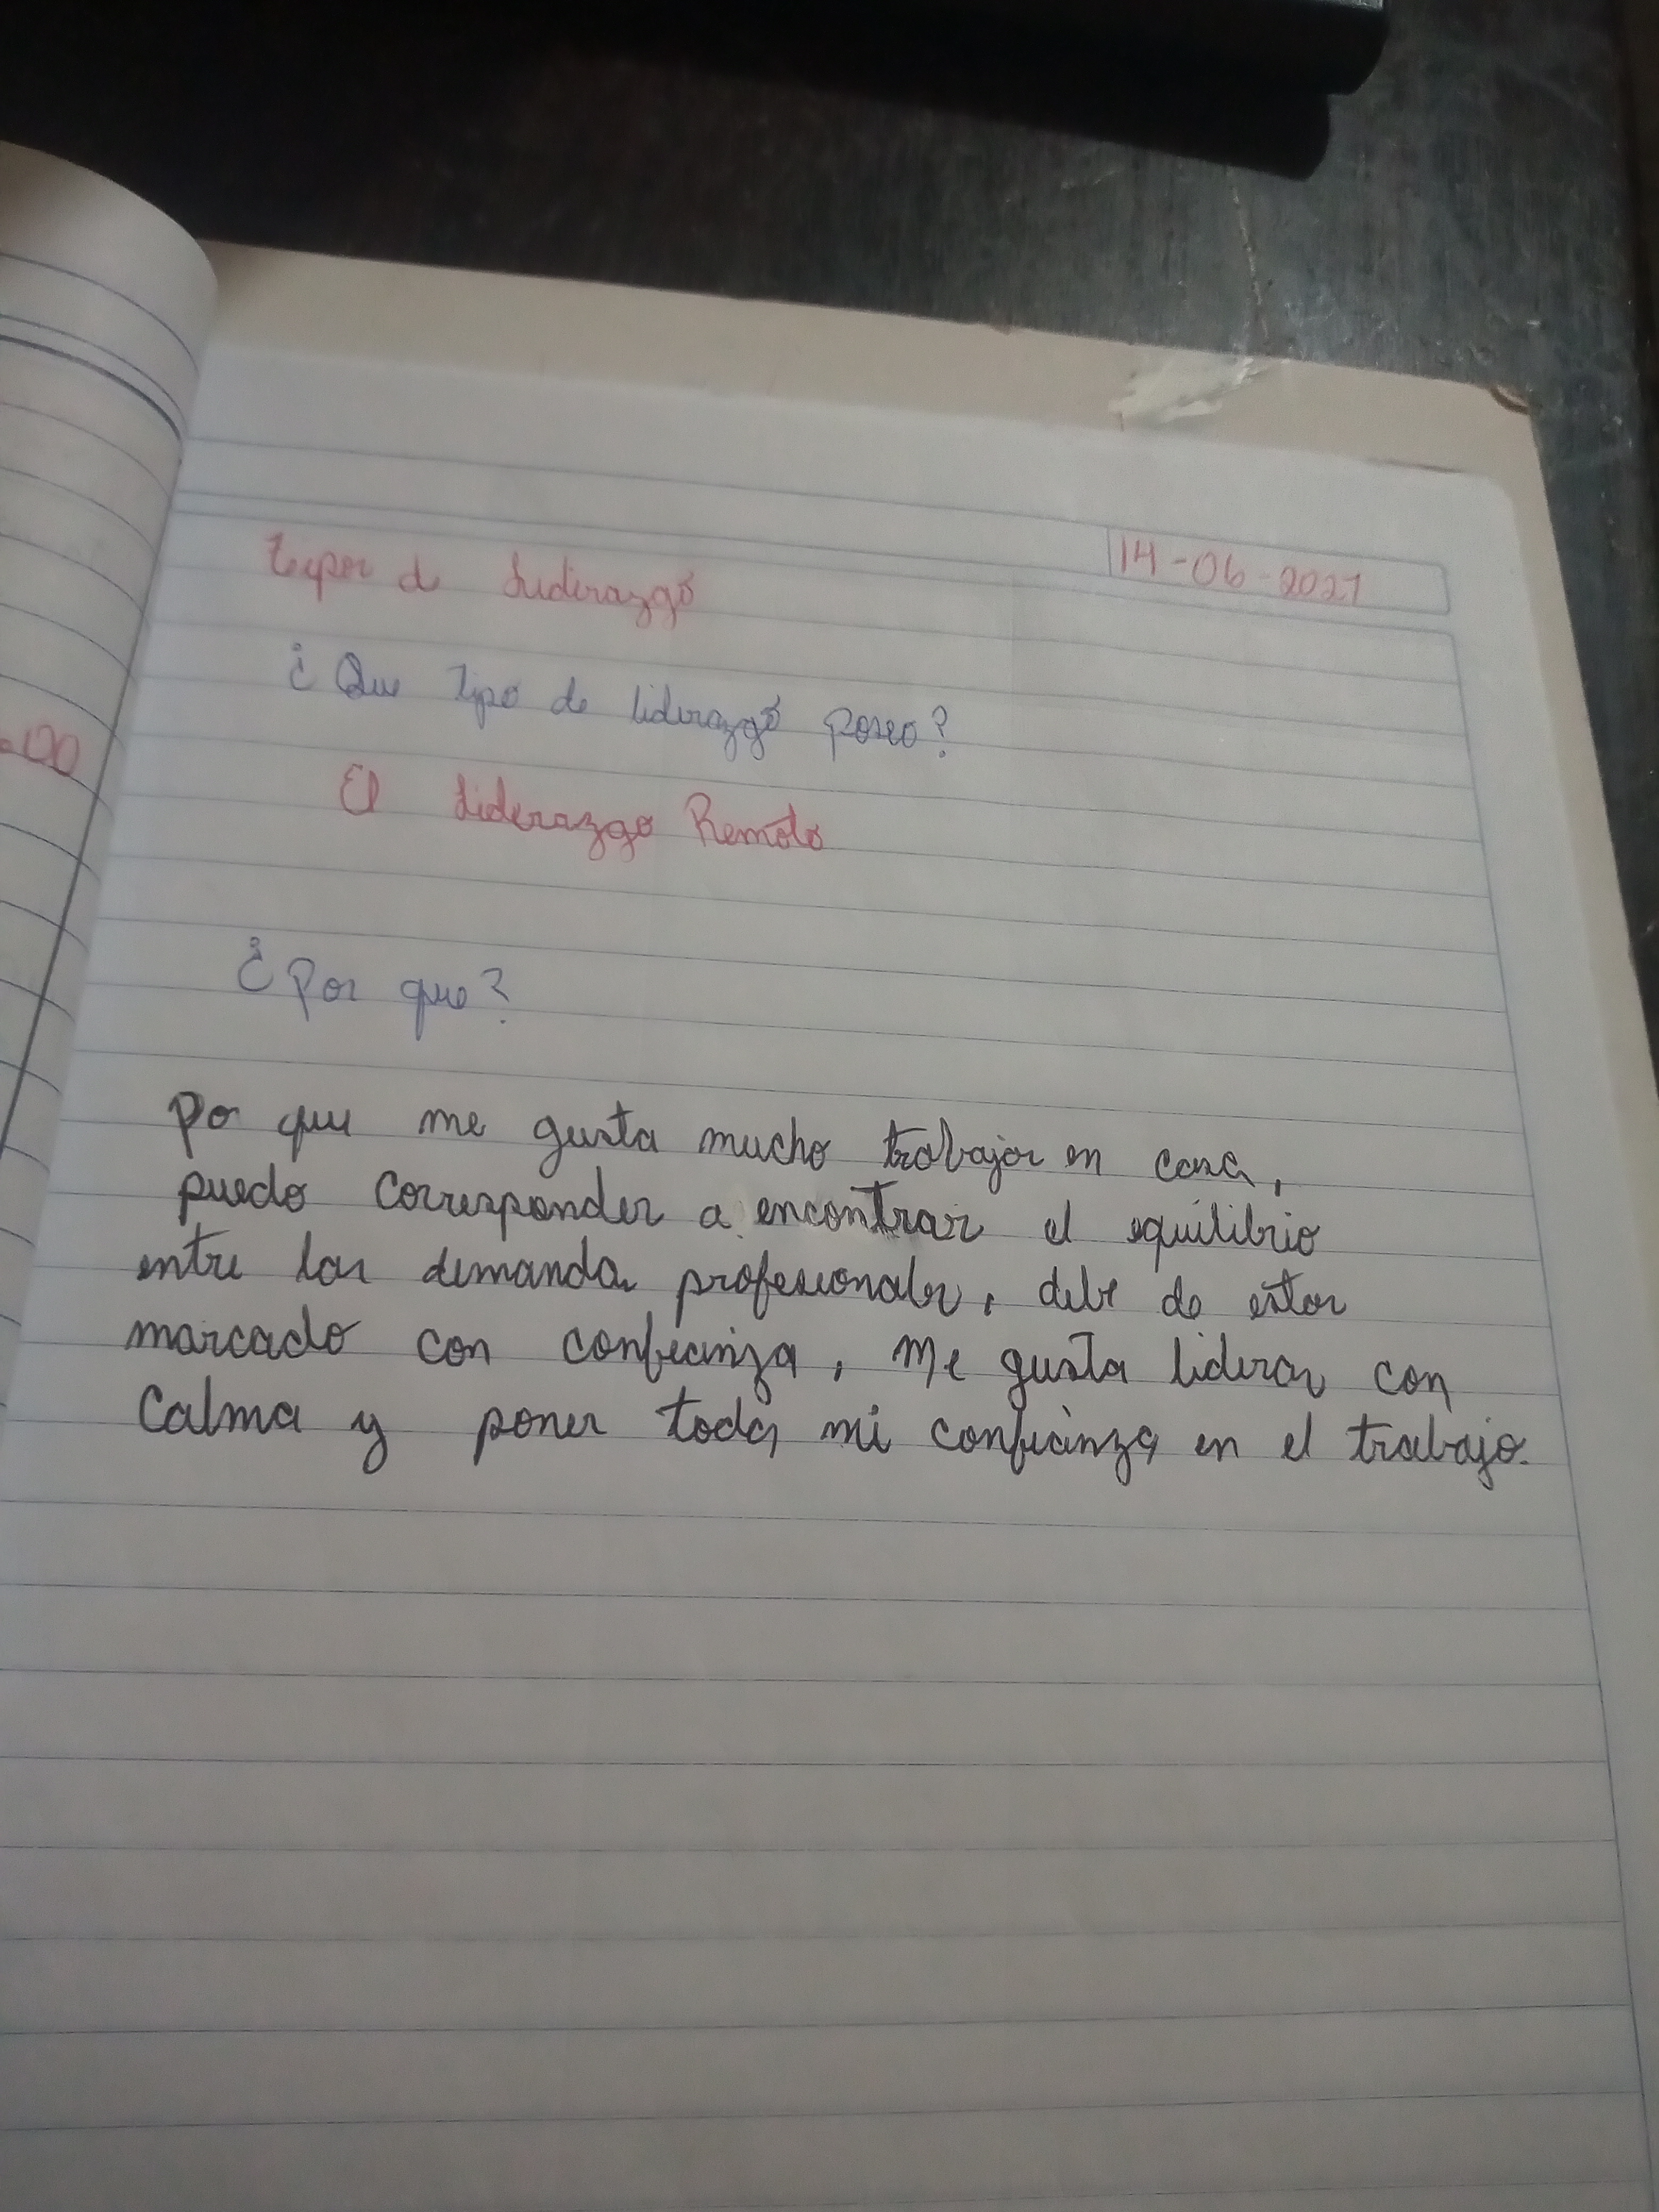 14-06-2021
Tipos de Liderazgo
¿Que tipo de liderazgo poseo?
El Liderazgo Remoto
=120
¿Por que?
Po que me gusta mucho trabajar en casa,
puedo corresponder a encontrar el equilibrio
entre las demandas profesionales, debe de estar
marcado con confianza, me gusta liderar con
Calma y poner toda mi confianza en el trabajo.